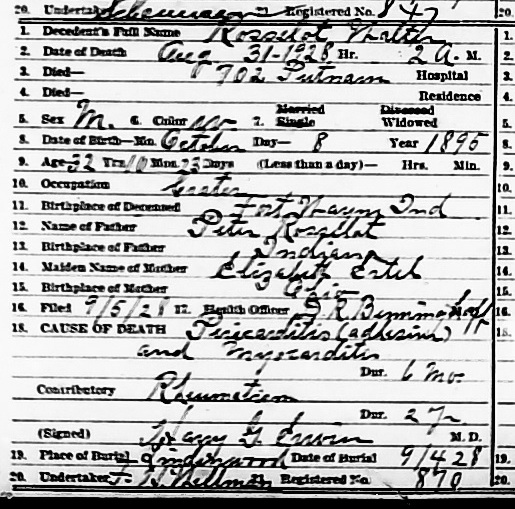 20. Undertaker Scheumann 21. Registered No. 847 20.
1. Decedent's Full Name Rosselot Walter 1.
2. Date of Death Aug 31-1928 Hr. 2 A. M. 2.
3. Died— 702 Putnam Hospital 3.
4. Died— Residence 4.
5. Sex M. 6. Color W 7. Married Single Divorced Widowed 5.
8. Date of Birth—Mo. October Day— 8 Year 1895 8.
9. Age 32 Yrs. 10 Mos. 23 Days (Less than a day)— Hrs. Min. 9.
10. Occupation 10.
11. Birthplace of Deceased Fort Wayne Ind 11.
12. Name of Father Peter Rosselot 12.
13. Birthplace of Father Indiana 13.
14. Maiden Name of Mother Elizabeth Ertel 14.
15. Birthplace of Mother Ohio 15.
16. Filed 9/5/28 17. Health Officer 16.
18. CAUSE OF DEATH Pericarditis (adhesive) 18.
and Myocarditis
Dur. 6 Mo.
Contributory Rheumatism
Dur. 2 Yr.
(Signed) Harry G. Erwin M. D.
19. Place of Burial Lindenwood Date of Burial 9/4 28 19.
20. Undertaker Hillman 21. Registered No. 870 20.